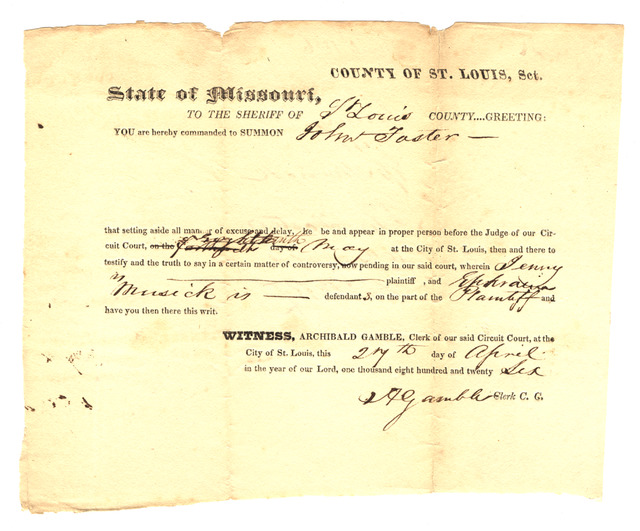 COUNTY OF ST. LOUIS, Sct.
State of Missouri,
TO THE SHERIFF OF St Louis COUNTY....GREETING:
YOU are hereby commanded to SUMMON John Foster —
that setting aside all manner of excuse and delay, he be and appear in proper person before the Judge of our Cir-
cuit Court, on the day of May at the City of St. Louis, then and there to
testify and the truth to say in a certain matter of controversy, now pending in our said court, wherein Jenny
plaintiff , and Ephraim
Musick is — defendant s, on the part of the Plaintiff and
have you then there this writ.
WITNESS, ARCHIBALD GAMBLE, Clerk of our said Circuit Court, at the
City of St. Louis, this 27th day of April
in the year of our Lord, one thousand eight hundred and twenty Six
A Gamble Clerk C. C.